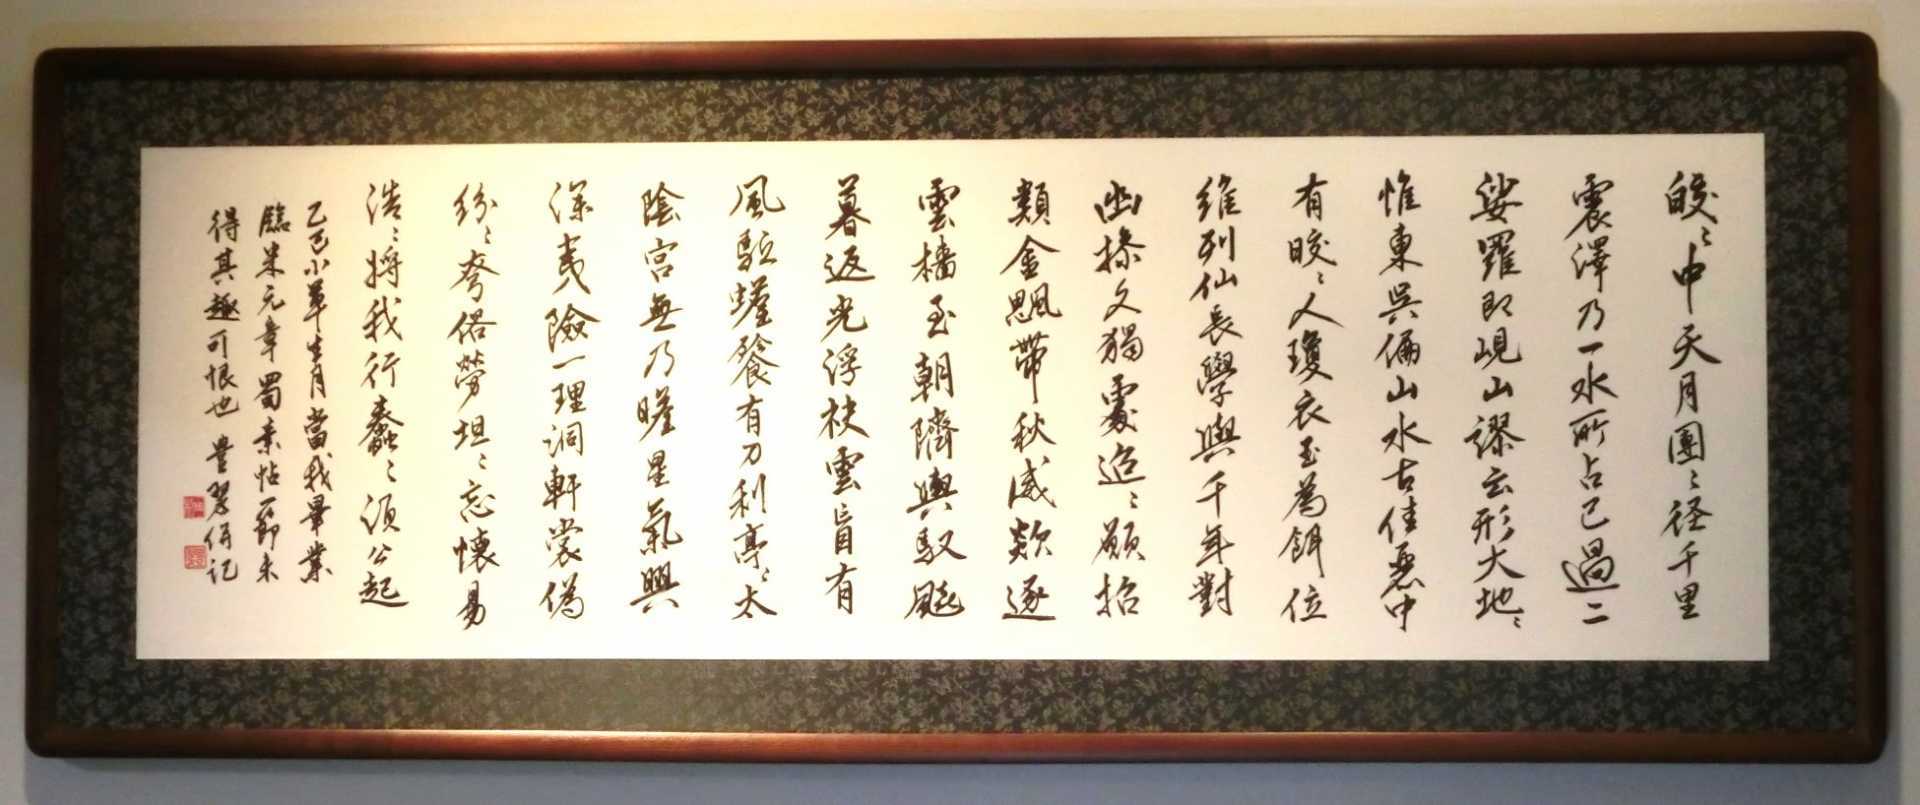 皎〻中天月團〻径千里
震澤乃一水所占已過二
娑羅即峴山謬云形大地〻
惟東吳偏山水古佳麗中
有皎〻人瓊衣玉為餌位
維列仙長學與千年對
幽操久獨處迢〻願招
類金飔帶秋威欻逐
雲檣至朝隮輿馭飈
暮返光浮袂雲盲有
風駈蟾餐有刀利亭〻太
陰宮無乃瞻星氣興
深夷險一理洞軒裳偽
紛〻夸俗勞坦〻忘懷易
浩〻將我行蠢〻須公起
乙巳小草生月當我畢業
臨米元章蜀素帖一節未
得其趣可恨也 記